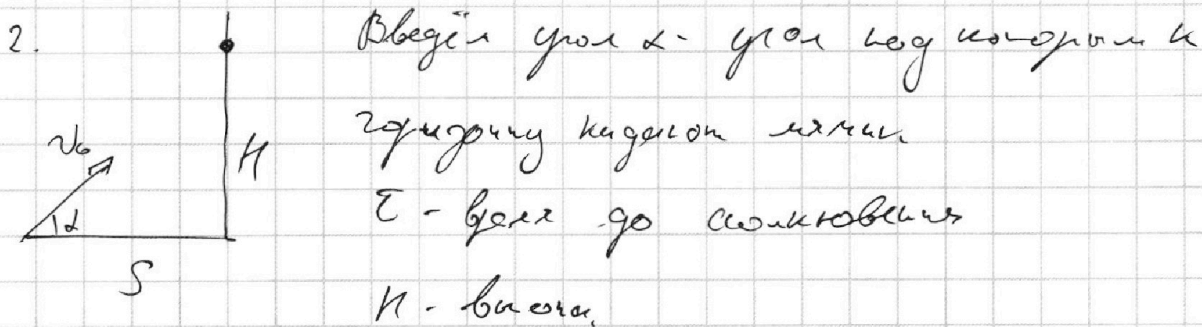 2.
Введём угол α - угол под которым к
горизонту кидают мячик
v₀
H
α
τ - время до столкновения
S
H - высота